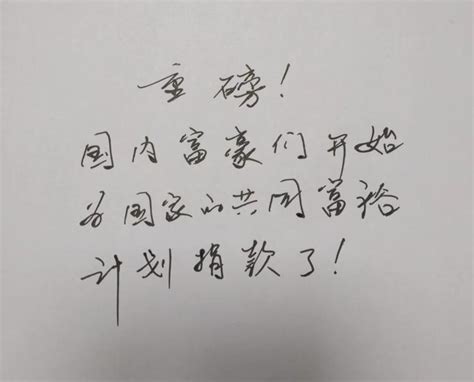 重磅！
国内富豪们开始
为国家的共同富裕
计划捐款了！